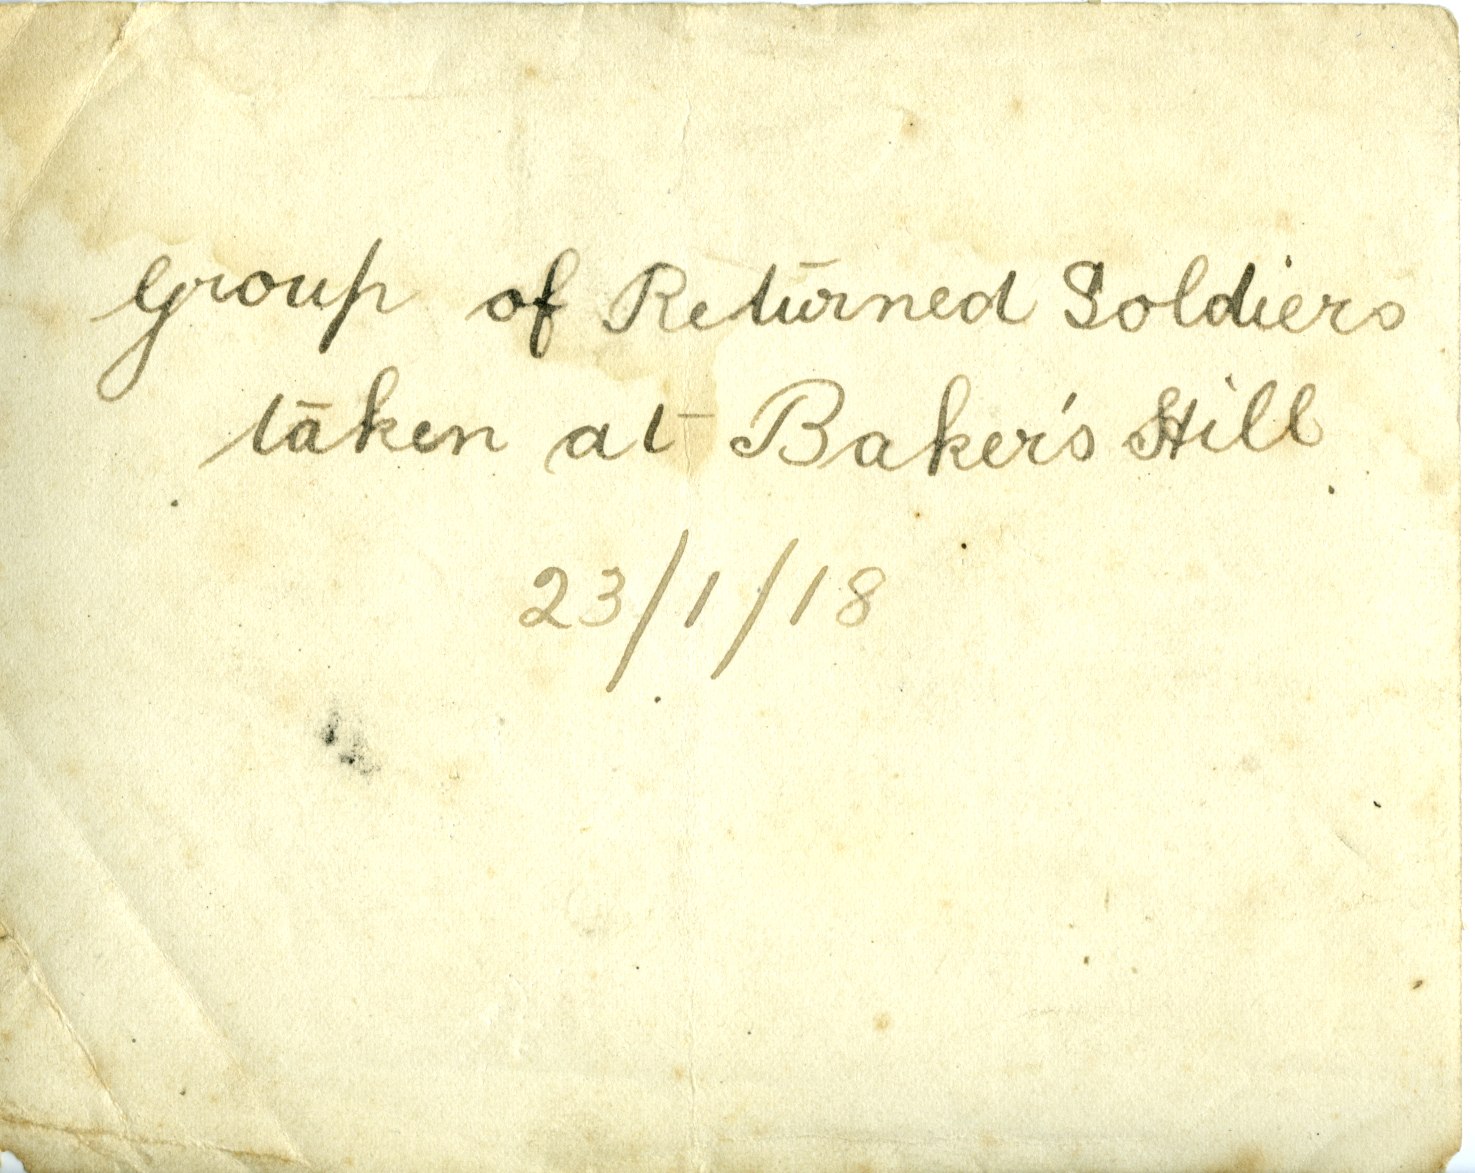 Group of Returned Soldiers
taken at Baker's Hill
23/1/18